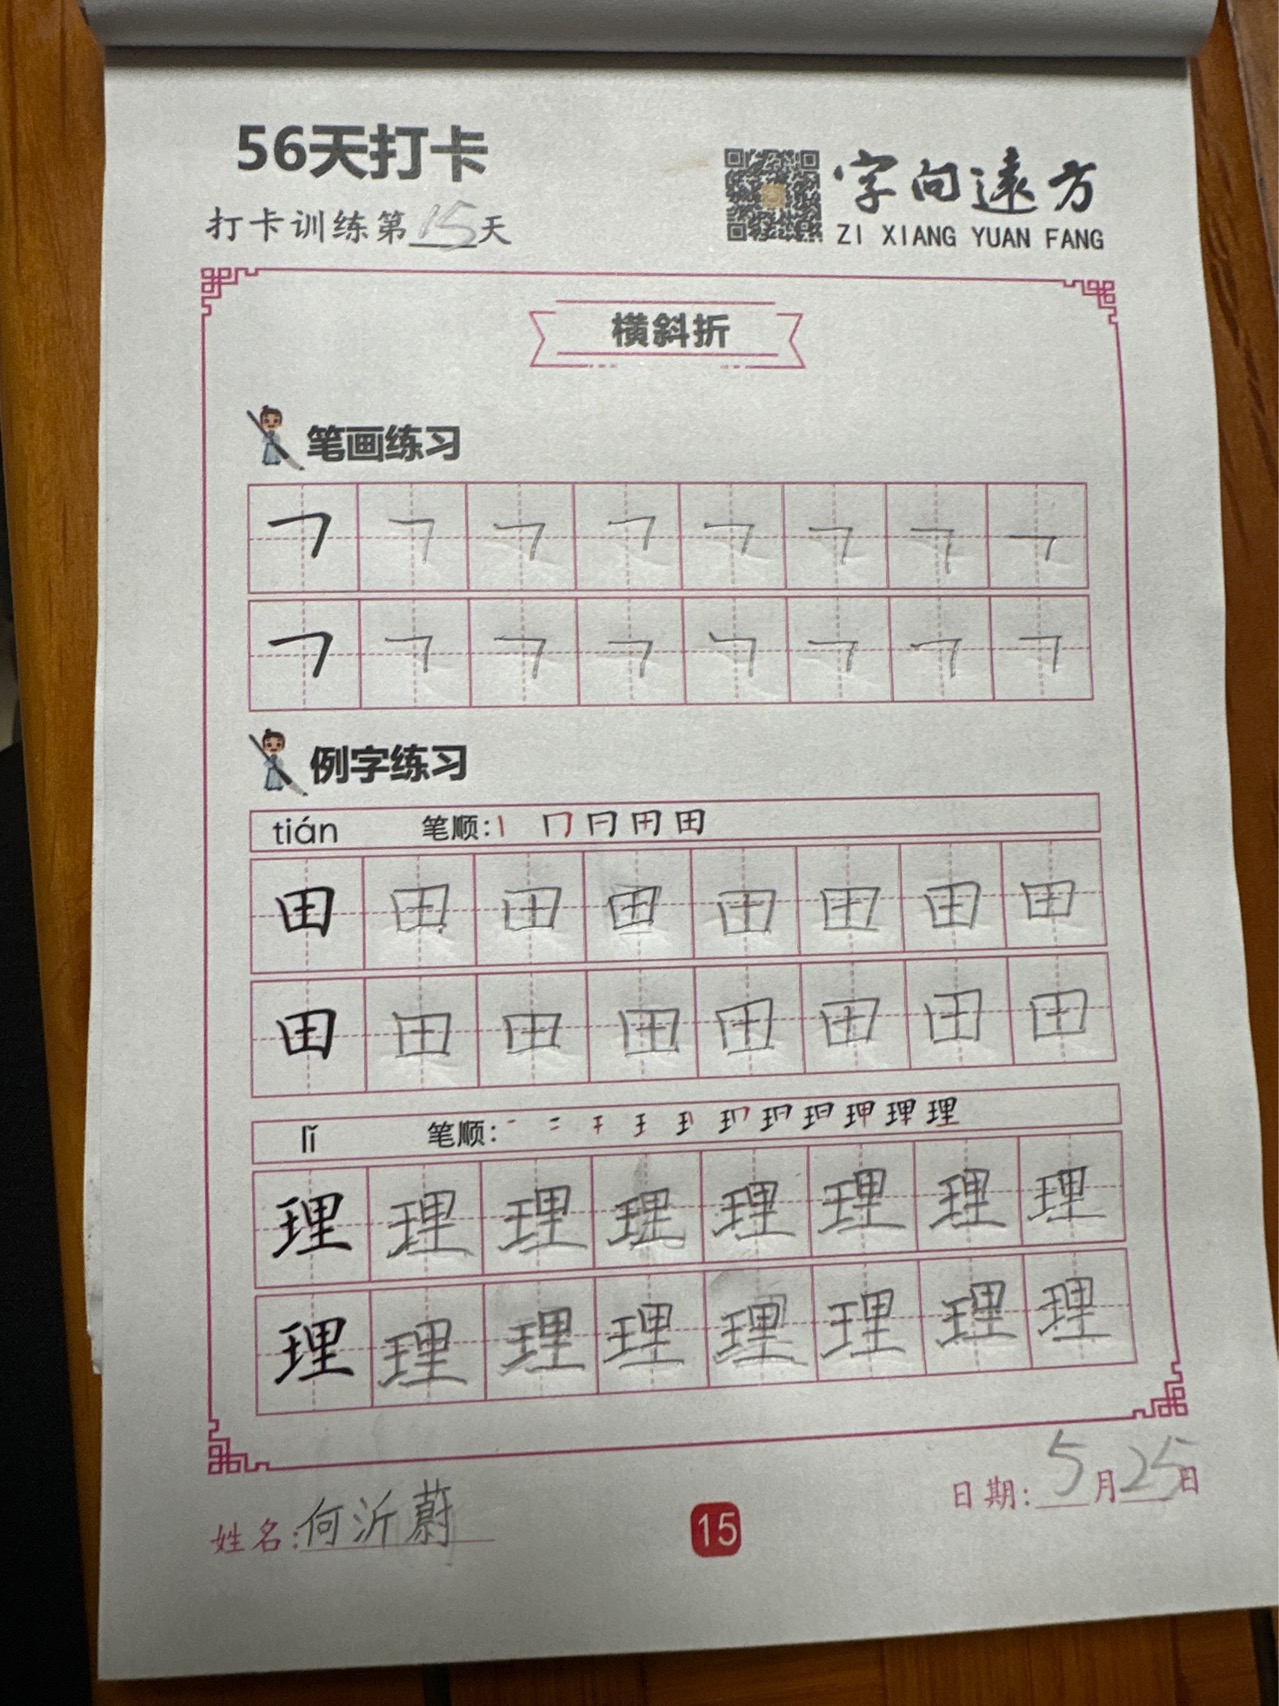 56天打卡
打卡训练第15天
字向遠方
ZI XIANG YUAN FANG
横斜折
笔画练习
㇕ ㇕ ㇕ ㇕ ㇕ ㇕ ㇕ ㇕
㇕ ㇕ ㇕ ㇕ ㇕ ㇕ ㇕ ㇕
例字练习
tián 笔顺: 丨 冂 冃 田 田
田 田 田 田 田 田 田 田
田 田 田 田 田 田 田 田
lǐ 笔顺:
理 理 理 理 理 理 理 理
理 理 理 理 理 理 理 理
姓名:何沂蔚
15
日期:5月25日